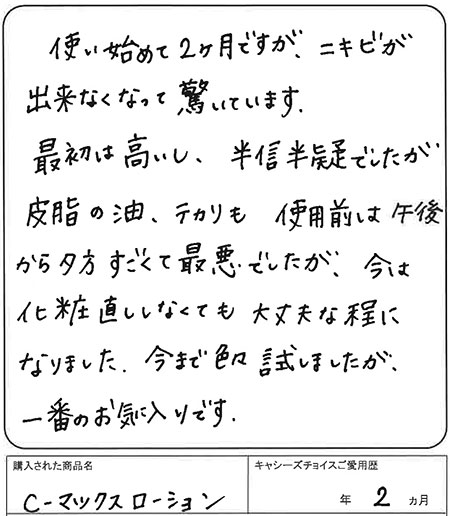 使い始めて2ヶ月ですが、ニキビが
出来なくなって驚いています.
最初は高いし、半信半疑でしたが
皮脂の油、テカリも 使用前は午後
から夕方すごくて最悪でしたが、今は
化粧直ししなくても大丈夫な程に
なりました. 今まで色々試しましたが、
一番のお気に入りです.
購入された商品名
キャシーズチョイスご愛用歴
C-マックスローション
年 2 ヵ月